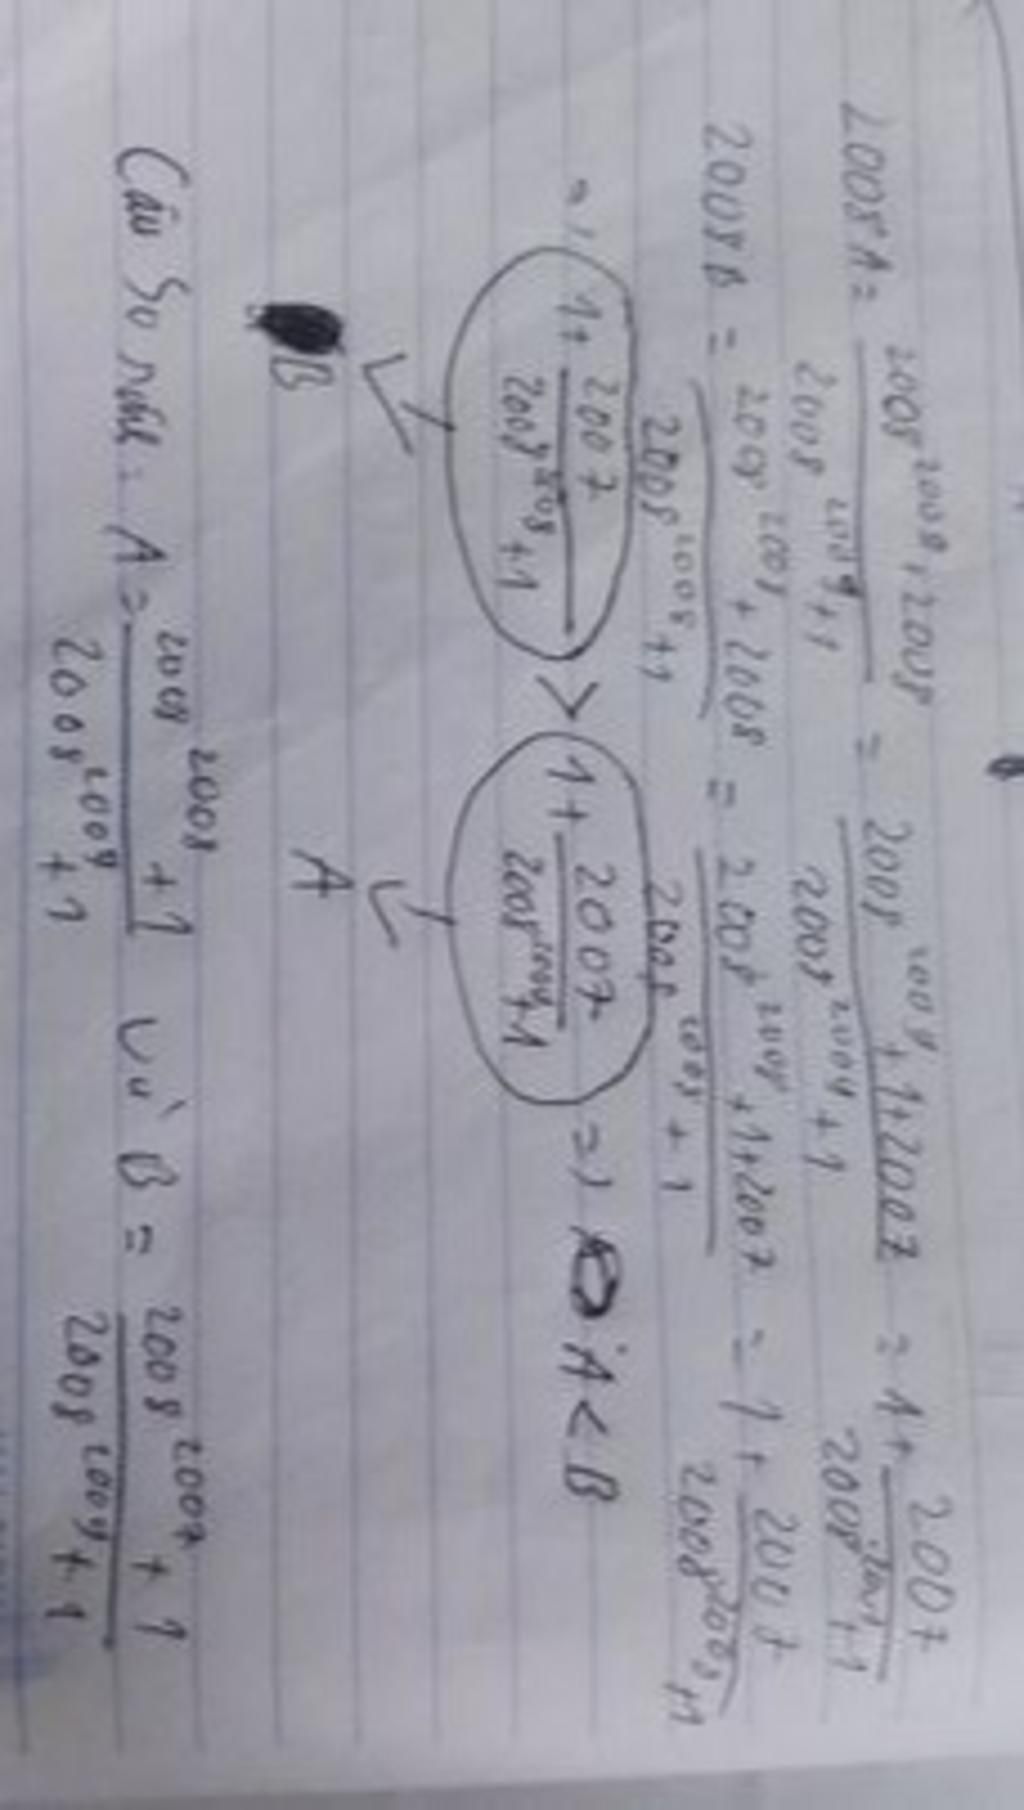 2008A = (2008^2009 + 2008)/(2008^2009 + 1) = (2008^2009 + 1 + 2007)/(2008^2009 + 1) = 1 + 2007/(2008^2009 + 1)
2008B = (2008^2008 + 2008)/(2008^2008 + 1) = (2008^2008 + 1 + 2007)/(2008^2008 + 1) = 1 + 2007/(2008^2008 + 1)
=> 1 + 2007/(2008^2008 + 1) > 1 + 2007/(2008^2009 + 1) => A < B
B A
A = (2008^2008 + 1)/(2008^2009 + 1) và B = (2008^2007 + 1)/(2008^2009 + 1)